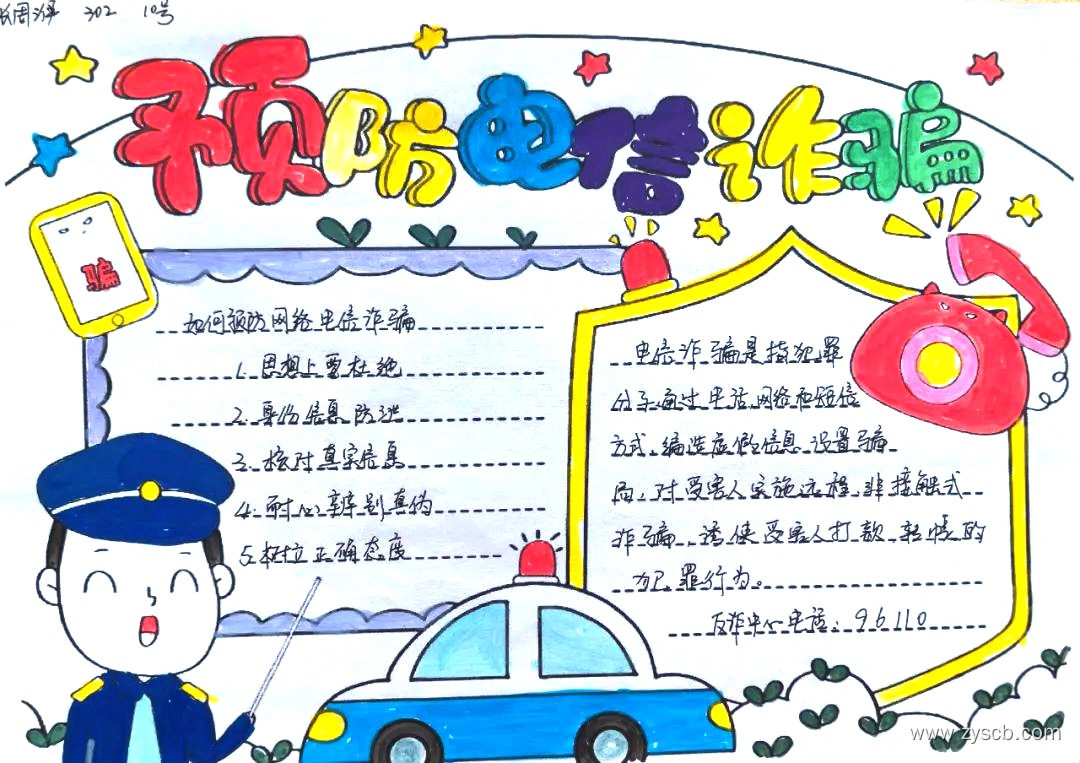 302 10号
预防电信诈骗
骗
如何预防网络电信诈骗
1. 思想上要杜绝
2. 身份信息防泄
3. 核对真实信息
4. 耐心辨别真伪
5. 树立正确态度
电信诈骗是指犯罪
分子通过电话、网络和短信
方式,编造虚假信息,设置骗
局,对受害人实施远程、非接触式
诈骗,诱使受害人打款、转帐的
犯罪行为。
反诈中心电话:96110
www.zyscb.com